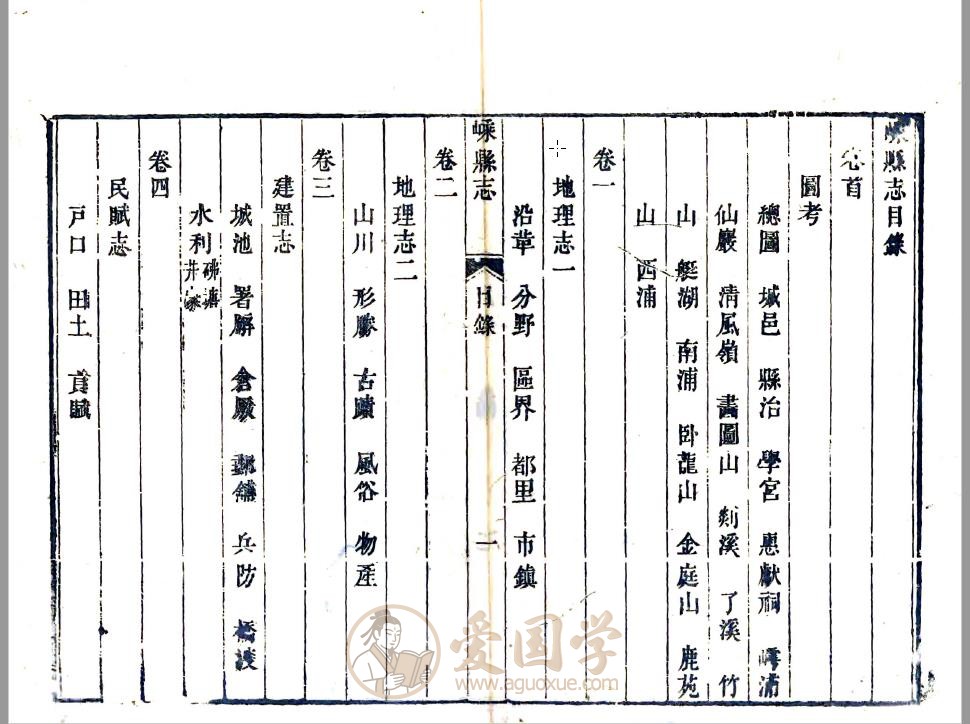 嵊縣志目錄
卷首
圖考
總圖 城邑 縣治 學宮 惠献祠 嶀浦
仙巖 清風嶺 畵圖山 剡溪 了溪 竹
山 艇湖 南浦 卧龍山 金庭山 鹿苑
山 西浦
卷一
地理志一
沿革 分野 區界 都里 市鎮
嵊縣志 目錄 一
卷二
地理志二
山川 形勝 古蹟 風俗 物産
卷三
建置志
城池 署廨 倉廒 郵舖 兵防 橋渡
水利
卷四
民賦志
戸口 田土 貢賦
爱国学
www.aguoxue.com